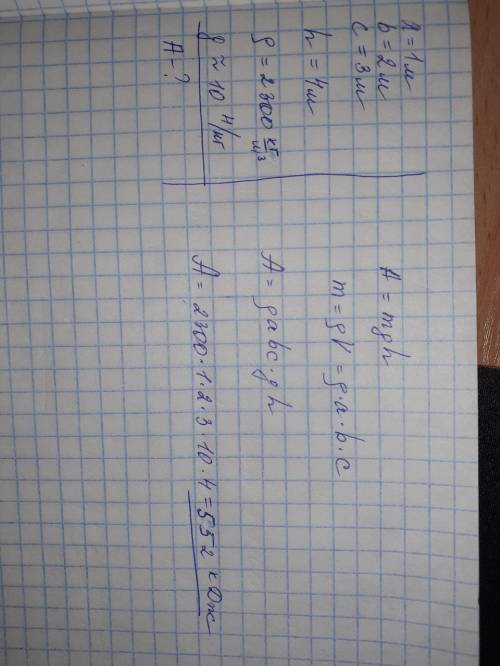 a = 1 м
b = 2 м
c = 3 м
h = 4 м
ρ = 2300 кг/м³
g ≈ 10 Н/кг
A - ?
A = mgh
m = ρV = ρ·a·b·c
A = ρabc·gh
A = 2300·1·2·3·10·4 = 552 кДж